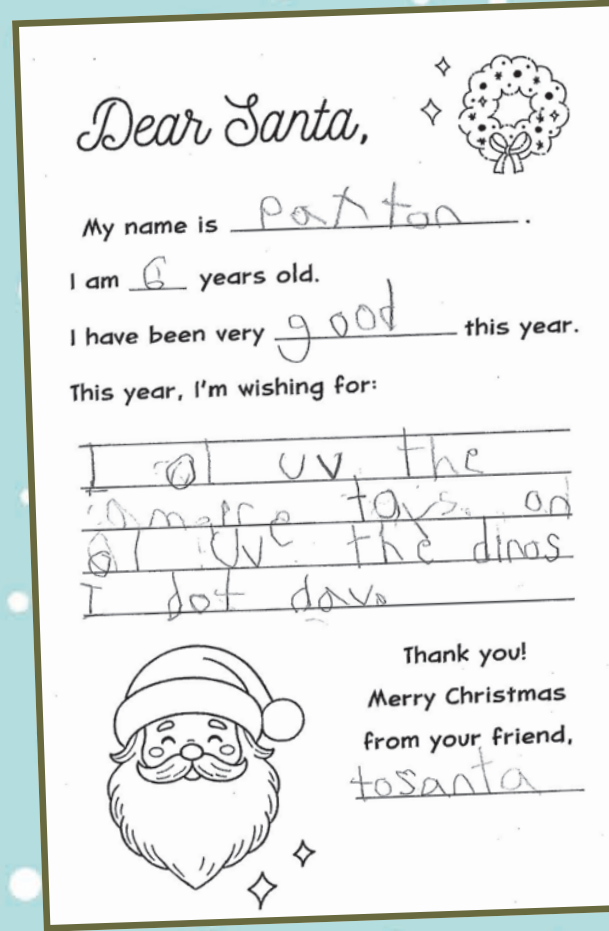 Dear Santa,
My name is Paxton.
I am 6 years old.
I have been very good this year.
This year, I'm wishing for:
I ol uv the
toys. on
ol uve the dinos
I dot dav.
Thank you!
Merry Christmas
from your friend,
tosanta